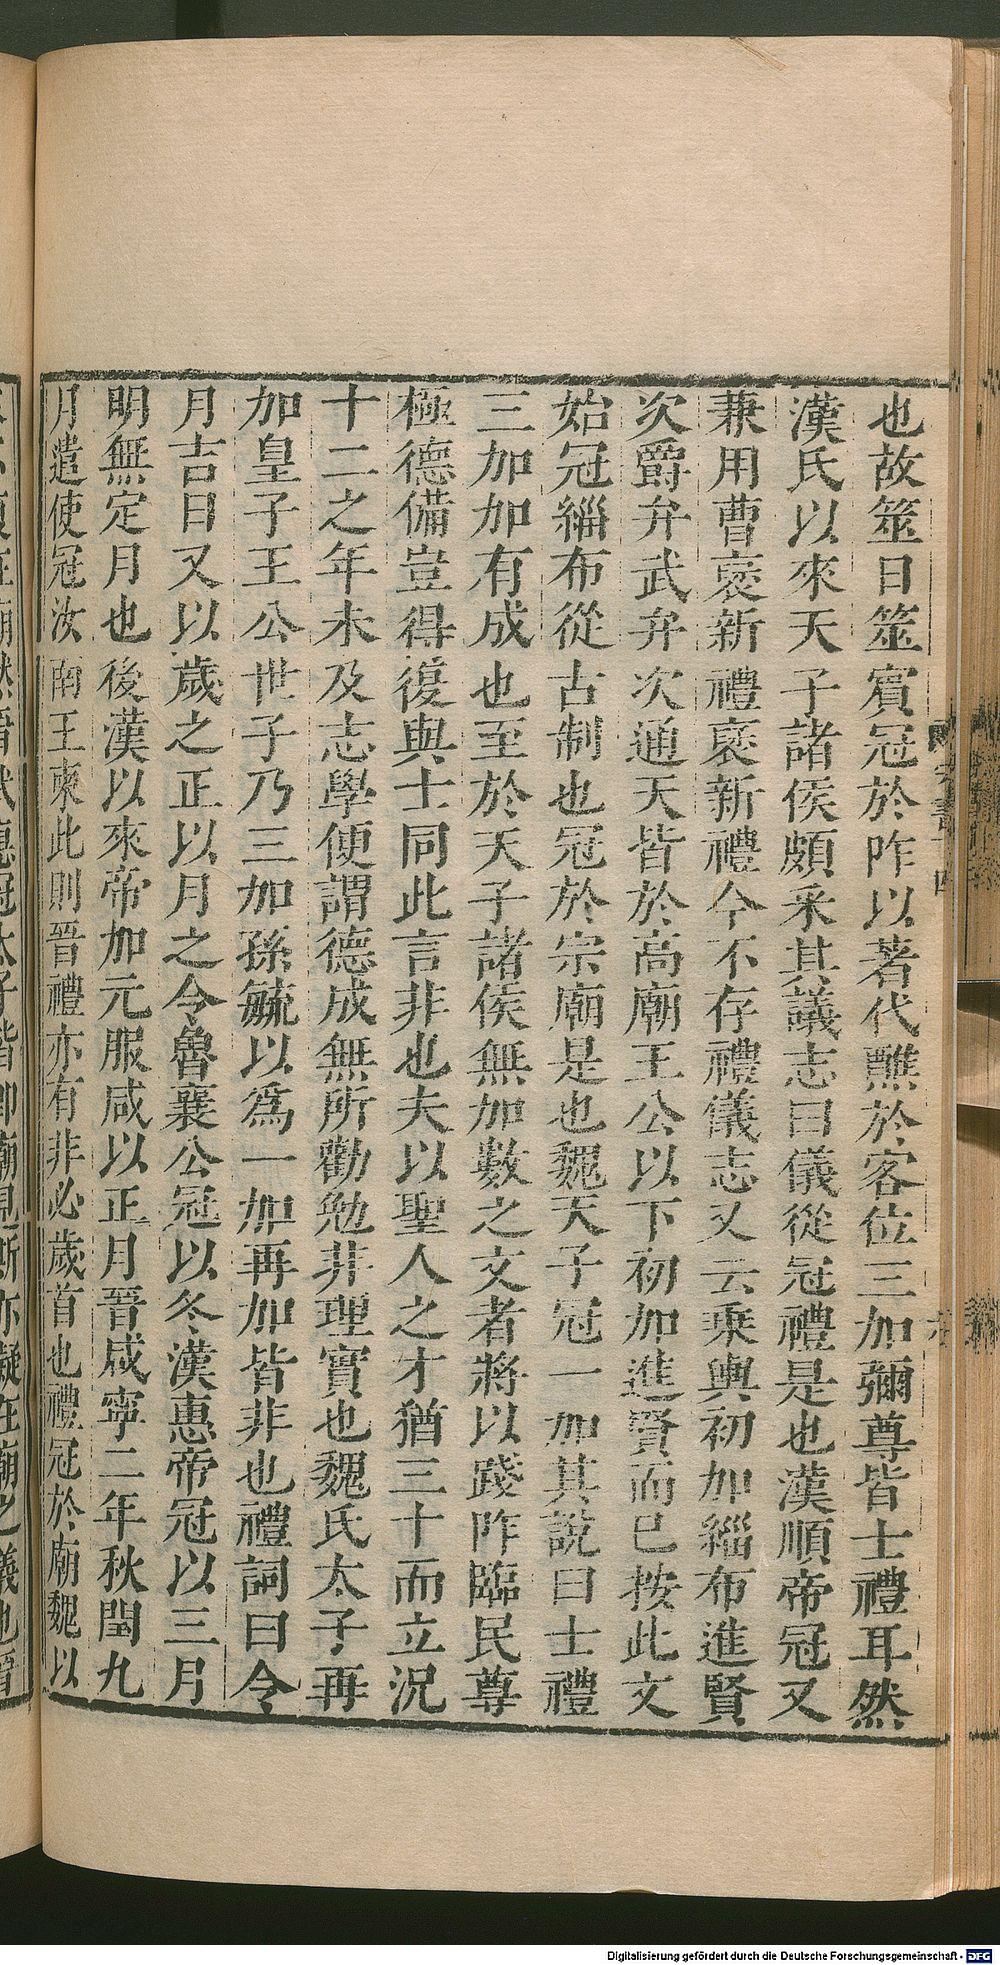 也故筮日筮賓冠於阼以著代醮於客位三加彌尊皆士禮耳然
漢氏以來天子諸侯頗采其議志曰儀從冠禮是也漢順帝冠又
兼用曹褒新禮褒新禮今不存禮儀志又云乘輿初加緇布進賢
次爵弁武弁次通天皆於高廟王公以下初加進賢而已按此文
始冠緇布從古制也冠於宗廟是也魏天子冠一加其說曰士禮
三加加有成也至於天子諸侯無加數之文者將以踐阼臨民尊
極德備豈得復與士同此言非也夫以聖人之才猶三十而立況
十二之年未及志學便謂德成無所勸勉非理實也魏氏太子再
加皇子王公世子乃三加孫毓以爲一加再加皆非也禮詞曰令
月吉日又以歲之正以月之令魯襄公冠以冬漢惠帝冠以三月
明無定月也後漢以來帝加元服咸以正月晉咸寧二年秋閏九
月遣使冠汝南王柬此則晉禮亦有非必歲首也禮冠於廟魏以
Digitalisierung gefördert durch die Deutsche Forschungsgemeinschaft - DFG